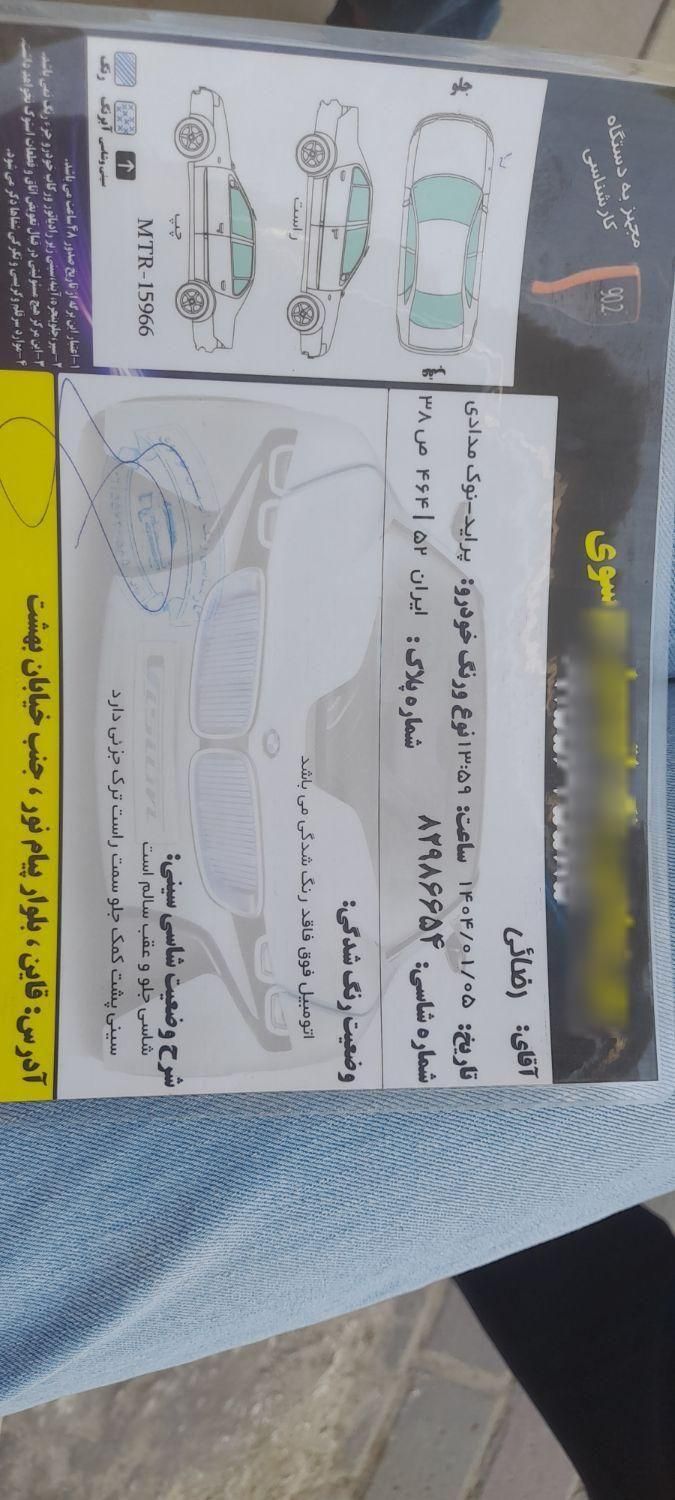 سوی
مجهز به دستگاه
کارشناسی
902
آقای: رضائی
تاریخ: ۱۴۰۴/۰۱/۰۵ ساعت: ۱۳:۵۹ نوع ورنگ خودرو: پراید-نوک مدادی
شماره شاسی: ۸۲۹۸۶۶۵۴ شماره پلاک: ایران ۵۲ | ۴۶۴ ص ۳۸
وضعیت رنگ شدگی:
اتومبیل فوق فاقد رنگ شدگی می باشد
شرح وضعیت شاسی سینی:
شاسی جلو و عقب سالم است
سینی پشت کمک جلو سمت راست ترک جزئی دارد
جلو
عقب
راست
چپ
MTR-15966
رنگ
آبرنگ
سینی وشاسی
۱-اعتبار این برگه از تاریخ صدور ۴۸ ساعت می باشد.
آدرس: قاین ، بلوار پیام نور ، جنب خیابان بهشت